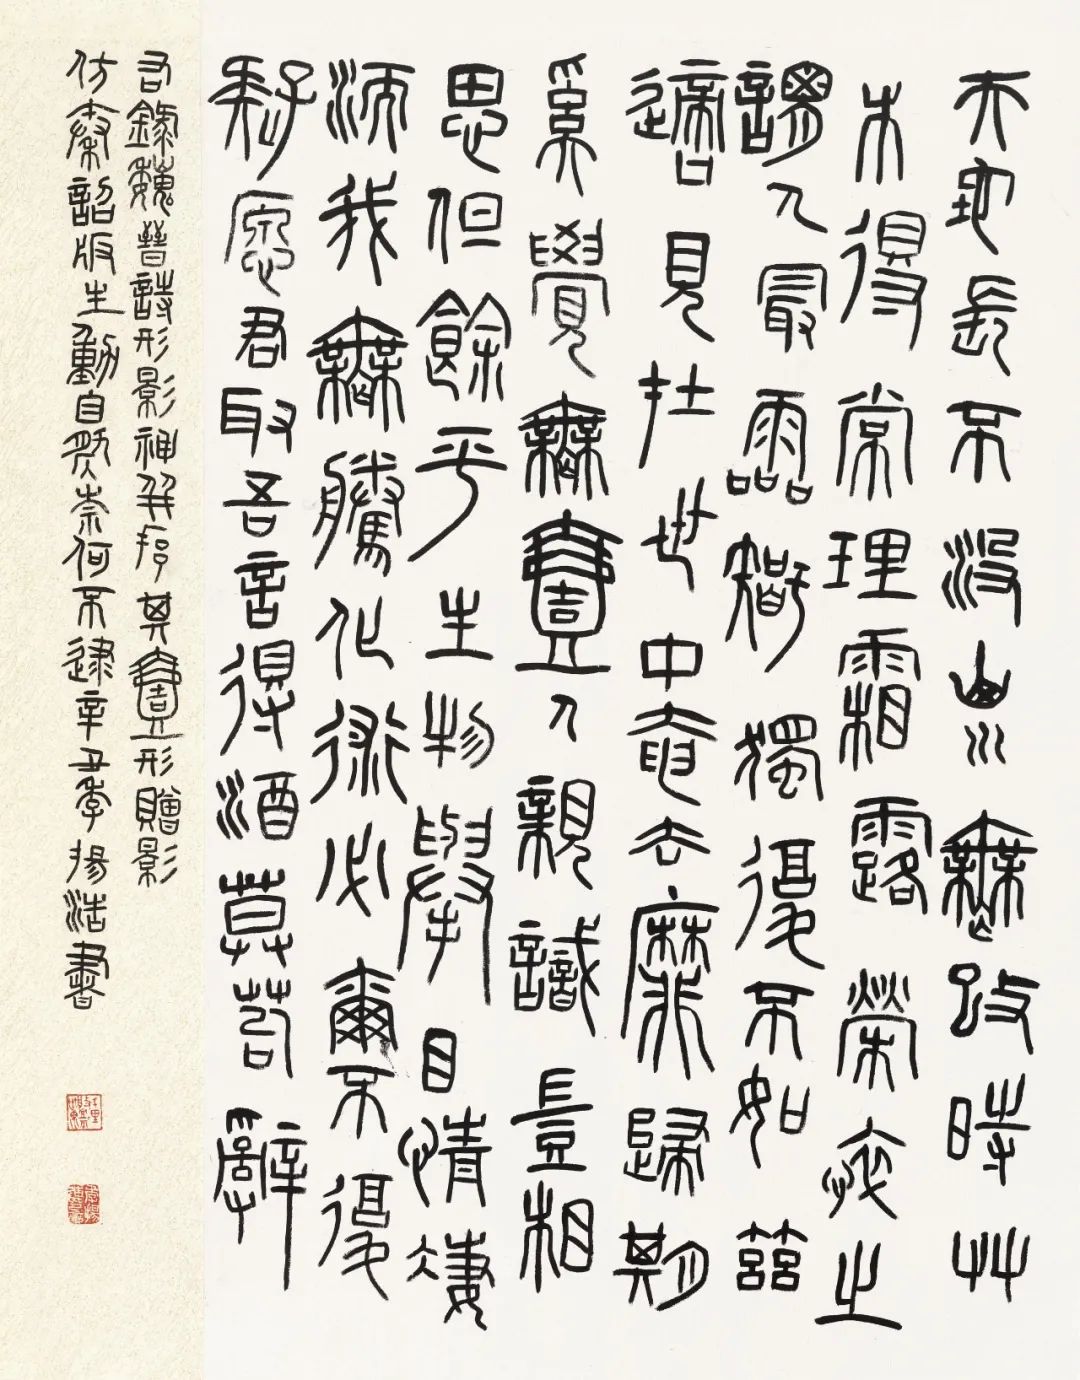 天地長不沒山川無改時艸
木得常理霜露榮悴之
謂人最靈智獨復不如茲
適見在世中奄去靡歸期
奚覺無壹人親識豈相
思但餘平生物舉目情悽
洏我無騰化術必爾不復
疑願君取吾言得酒莫苟辭
右錄魏晉詩形影神并序其壹形贈影
仿秦詔版生動自然奈何不逮辛丑李揚浩書